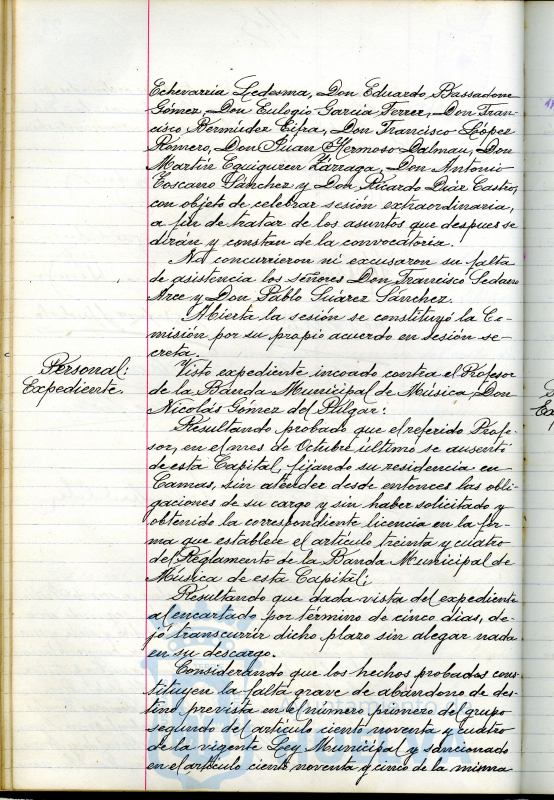 Echevarria Ledesma, Don Eduardo Bassadone
Gómez, Don Eulogio García Ferrer, Don Fran-
cisco Bermúdez Cifra, Don Francisco López
Romero, Don Juan Hermoso Dalmau, Don
Martín Eguiguren Zárraga, Don Antonio
Toscano Sánchez y Don Ricardo Díaz Castro,
con objeto de celebrar sesión extraordinaria,
a fin de tratar de los asuntos que despues se
dirán y constan de la convocatoria.
No concurrieron ni excusaron su falta
de asistencia los señores Don Francisco Sedano
Arce y Don Pablo Suárez Sánchez.
Abierta la sesión se constituyó la Co-
misión por su propio acuerdo en sesión se-
creta.
Personal:
Expediente.
Visto expediente incoado contra el Profesor
de la Banda Municipal de Música, Don
Nicolás Gómez del Pulgar:
Resultando probado que el referido Profe-
sor, en el mes de Octubre último se ausentó
de esta Capital, fijando su residencia en
Camas, sin atender desde entonces las obli-
gaciones de su cargo y sin haber solicitado y
obtenido la correspondiente licencia en la for-
ma que establece el artículo treinta y cuatro
del Reglamento de la Banda Municipal de
Música de esta Capital;
Resultando que dada vista del expediente
al encartado por término de cinco días, de-
jó transcurrir dicho plazo sin alegar nada
en su descargo.
Considerando que los hechos probados cons-
tituyen la falta grave de abandono de des-
tino prevista en el número primero del grupo
segundo del artículo ciento noventa y cuatro
de la vigente Ley Municipal y sancionado
en el artículo ciento noventa y cinco de la misma